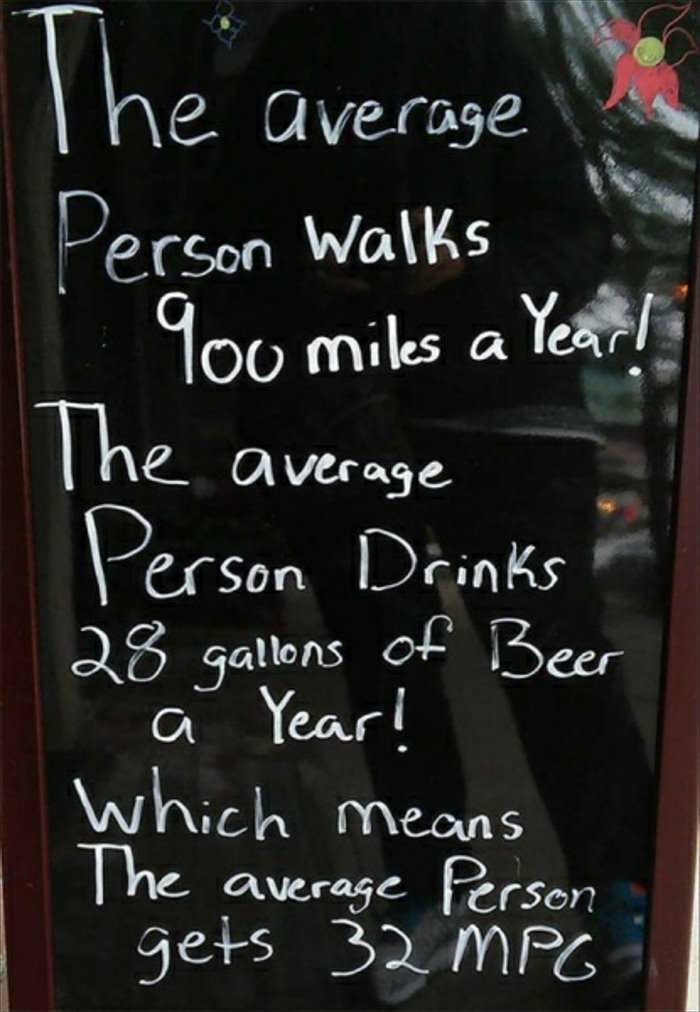 The average
Person Walks
900 miles a Year!
The average
Person Drinks
28 gallons of Beer
a Year!
which means
The average Person
gets 32 MPG